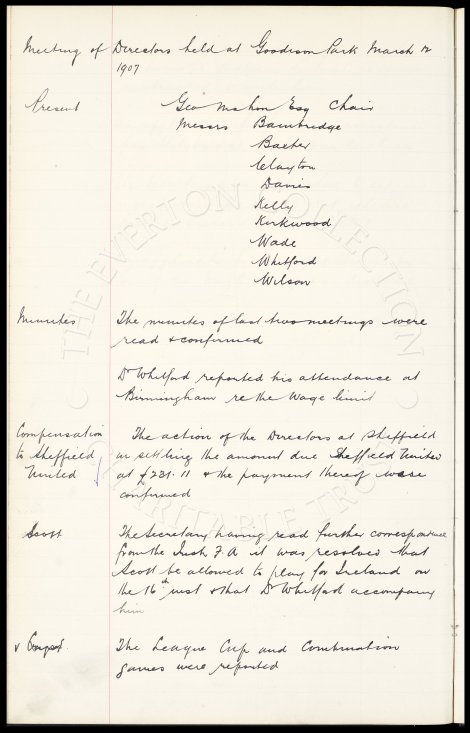 Meeting of Directors held at Goodison Park March 12
1907
Present Geo Mahon Esq Chair
Messrs Bainbridge
Baxter
Clayton
Davies
Kelly
Kirkwood
Wade
Whitford
Wilson
Minutes The minutes of last two meetings were
read & confirmed
Dr Whitford reported his attendance at
Birmingham re the Wage limit
Compensation The action of the Directors at Sheffield
to Sheffield in settling the amount due Sheffield United
United at £231.11 & the payment thereof were
confirmed
Scott The Secretary having read further correspondence
from the Irish F.A it was resolved that
Scott be allowed to play for Ireland on
the 16th inst & that Dr Whitford accompany
him
The League Cup and Combination
games were reported
THE EVERTON COLLECTION
CHARITABLE TRUST